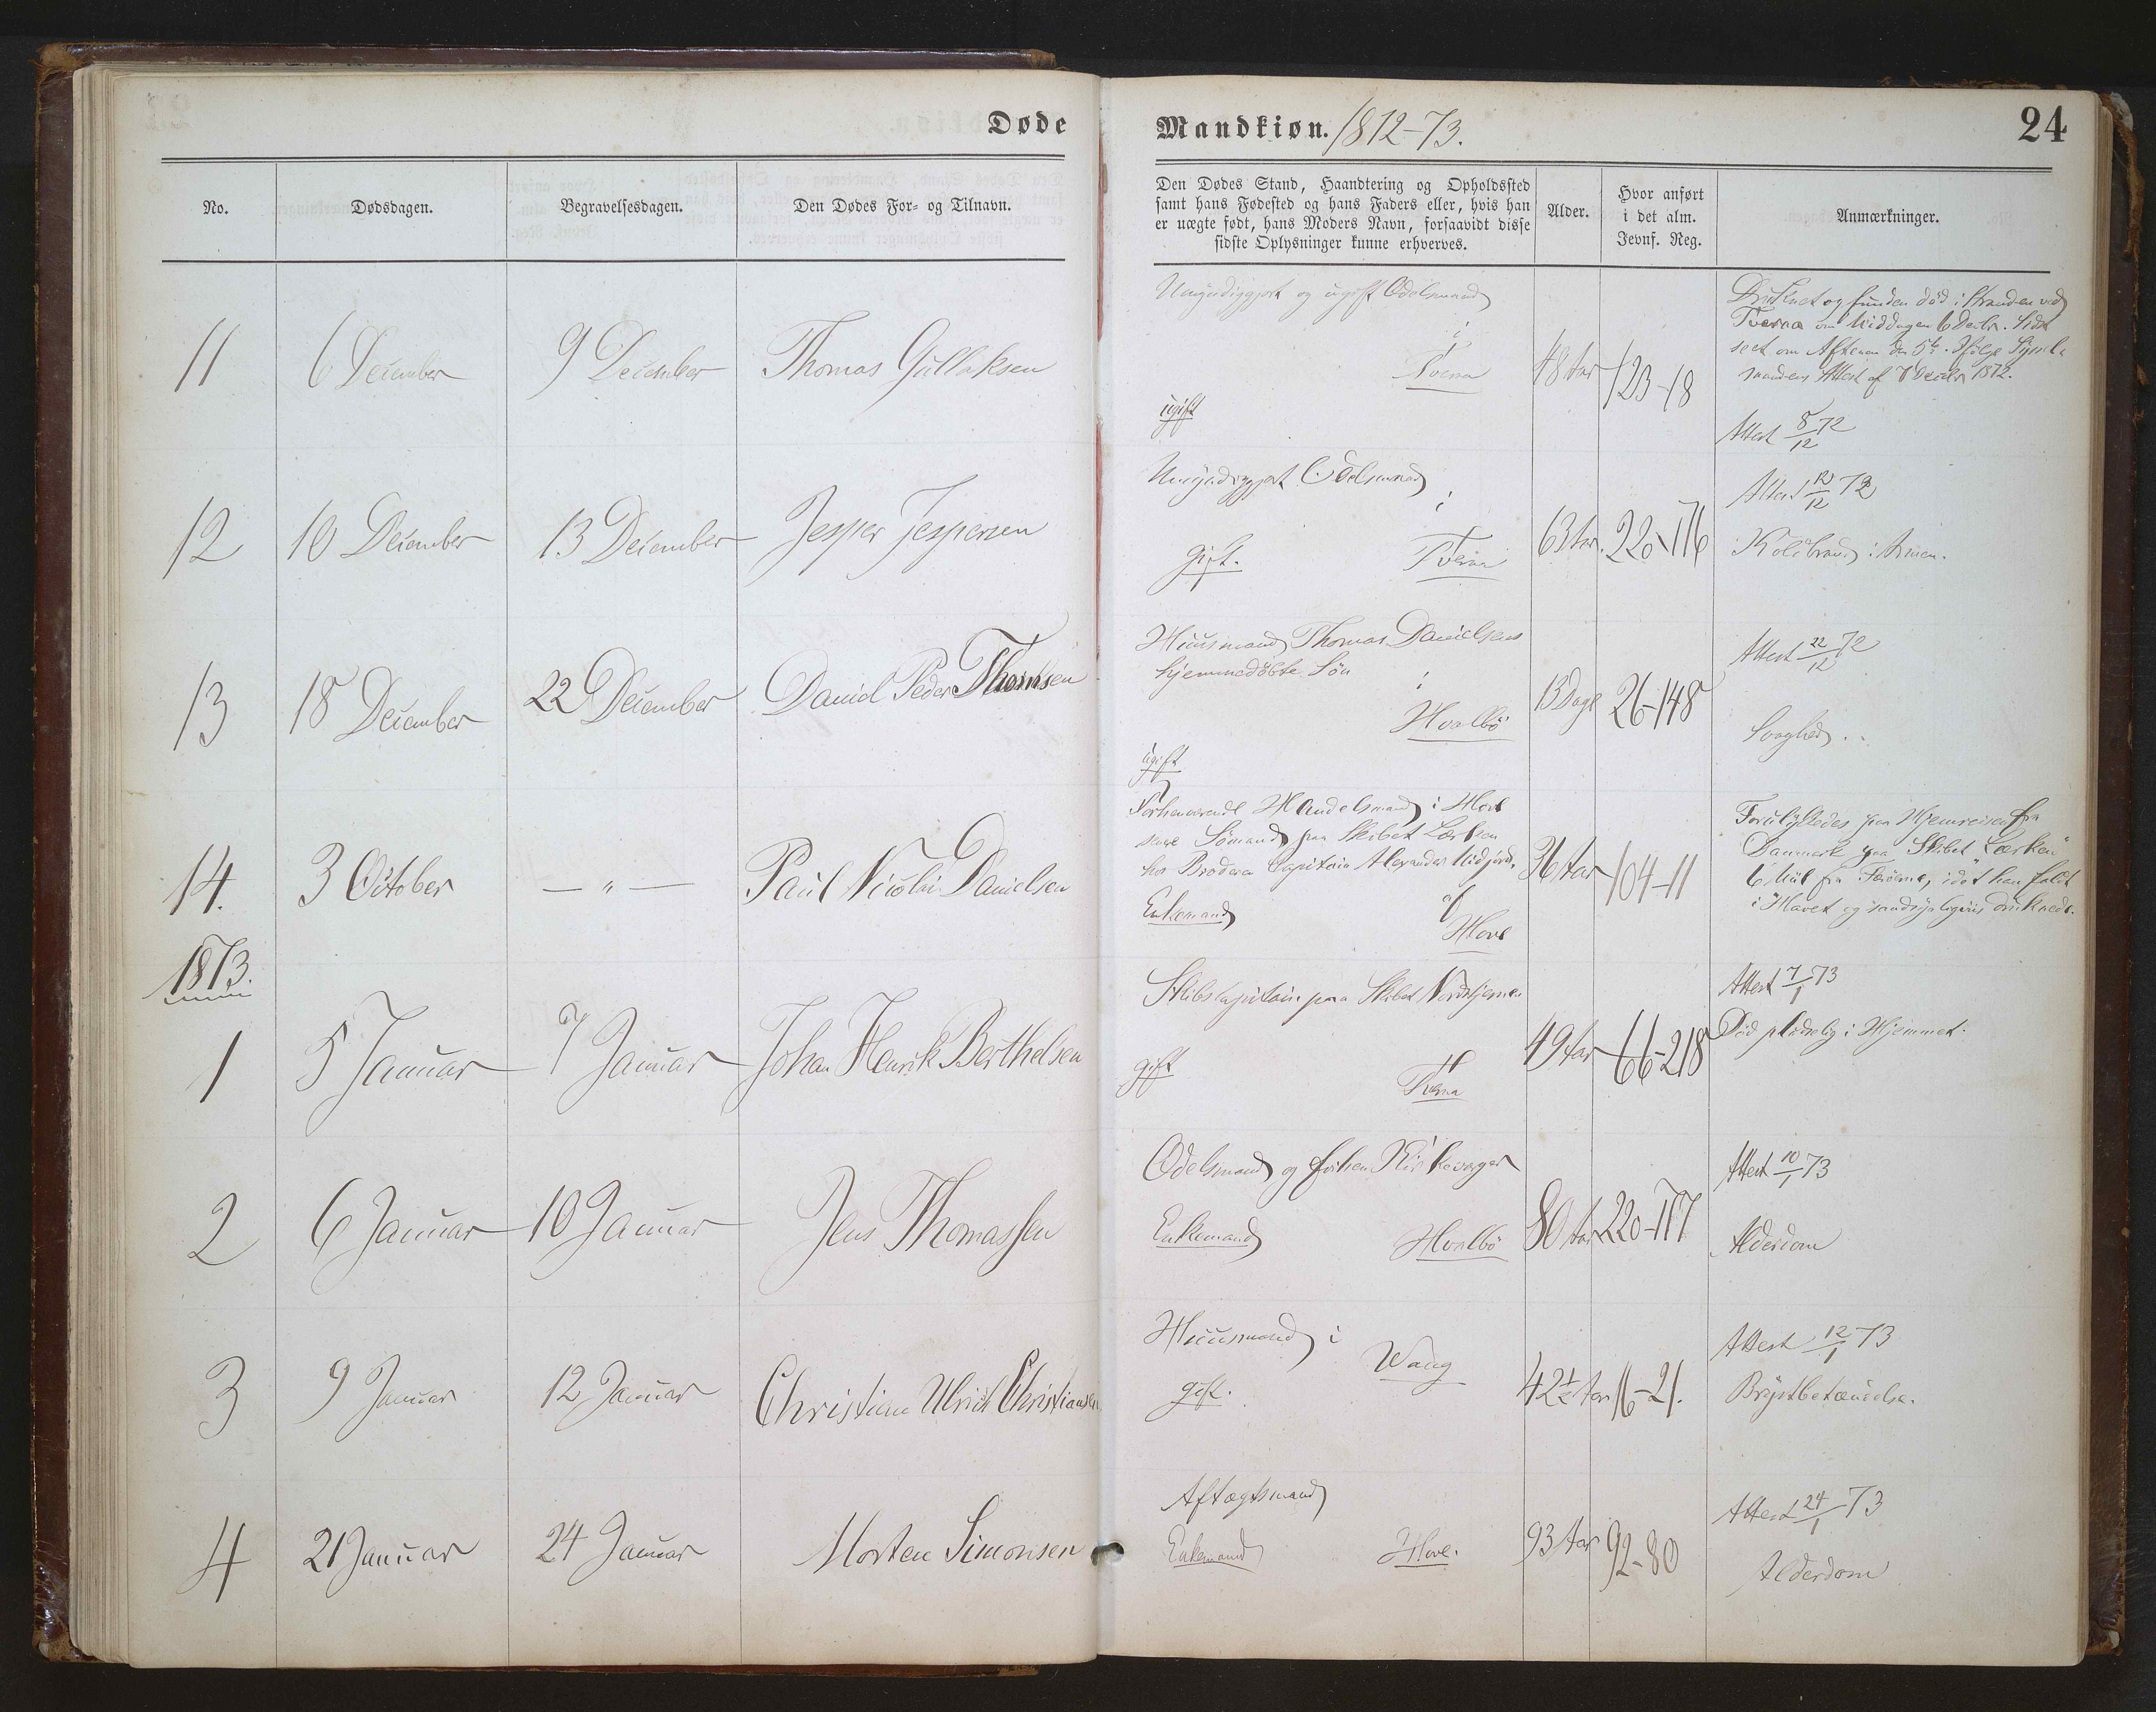 Døde
Mandkiøn. 1872-73.
24
No.
Dødsdagen.
Begravelsesdagen.
Den Dødes For- og Tilnavn.
Den Dødes Stand, Haandtering og Opholdssted
samt hans Fødested og hans Faders eller, hvis han
er uægte født, hans Moders Navn, forsaavidt disse
sidste Oplysninger kunne erhverves.
Alder.
Hvor anført
i det alm.
Jevnf. Reg.
Anmærkninger.
11
6 December
9 December
Thomas Gullaksen
Umyndiggjort og ugift Odelsmand
i
Tveraa
ugift
48 Aar
123-18
Druknet og funden død i Stranden ved
Tveraa om Middagen 6 Decbr. Sidst
seet om Aftenen den 5te. Ifølge Syssel-
mandens Attest af 7 Decbr 1872.
Attest 8/12 72
12
10 December
13 December
Jesper Jespersen
Umyndiggjort Odelsmand
i
gift.
Tveraa
63 Aar.
220-176
Attest 12/12 72
Koldbrand i Armen.
13
18 December
22 December
Daniel Peder Thomsen
Huusmand Thomas Danielsens
hjemmedøbte Søn
i
Hvalbö
ugift
13 Dage
26-148
Attest 22/12 72
Svaghed.
14.
3 October
— " —
Paul Nicolai Danielsen
Forhenværende Handelsmand i Hove
Sømand paa Skibet Lærken
hos Broderen Capitain Alexander Midjord.
af
Enkemand
Hove
36 Aar
104-11
Forulykkedes paa Hjemreisen fra
Danmark paa Skibet "Lærken"
6 Miil fra Færöerne, idet han faldt
i Havet og sandsynligviis druknede.
1873.
1
5 Januar
7 Januar
Johan Henrik Berthelsen
Skibskapitain paa Skibet Nordstjernen
gift
Tveraa
49 Aar
66-218
Attest 7/1 73
Död pludselig i Hjemmet.
2
6 Januar
10 Januar
Jens Thomassen
Odelsmand og forhen Kirkeværger
Enkemand
Hvalbö
80 Aar
220-177
Attest 10/1 73
Alderdom
3
9 Januar
12 Januar
Christian Ulrich Christiansen
Huusmand i
Waag
gift.
42½ Aar
16-21.
Attest 12/1 73
Brystbetændelse.
4
21 Januar
24 Januar
Morten Simonsen
Aftægtsmand
Enkemand
Hove.
93 Aar
92-80
Attest 24/1 73
Alderdom